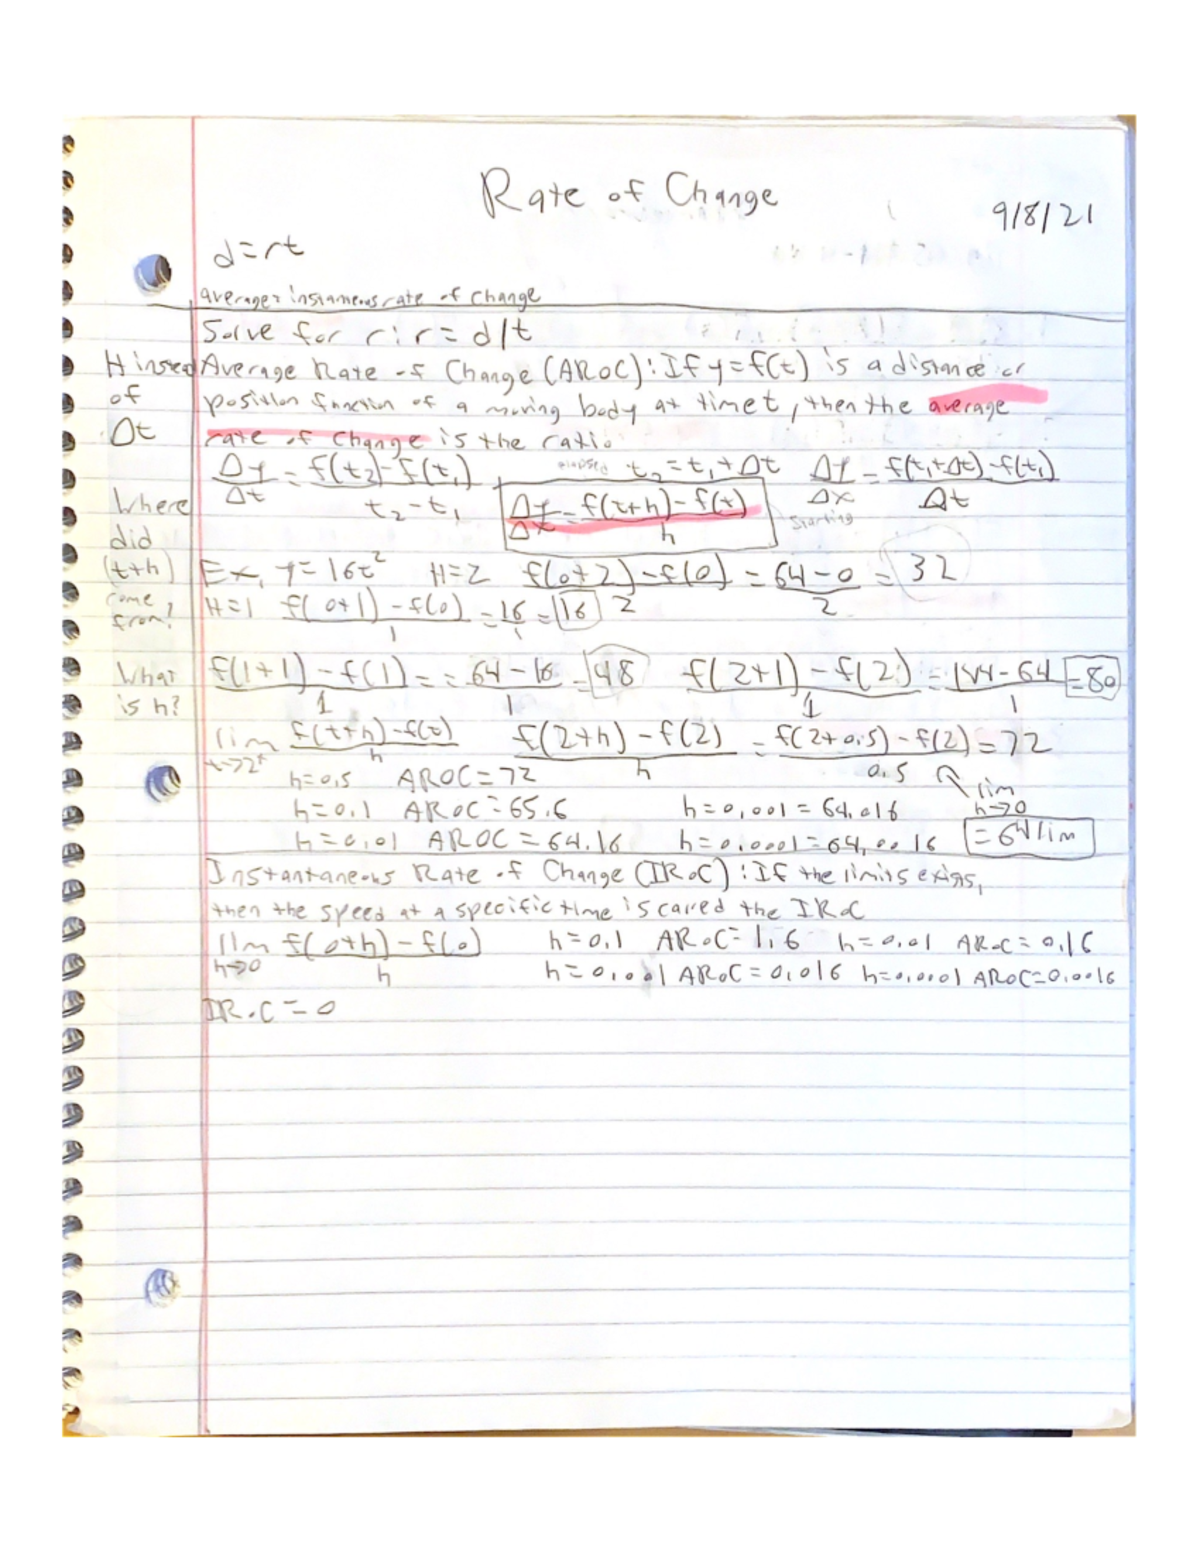 Rate of Change
9/8/21
d=rt
average & instaneous rate of change
Solve for r: r=d/t
H instead of Δt
Average Rate of Change (AROC): If y=f(t) is a distance or
position function of a moving body at time t, then the average
rate of change is the ratio
Δy/Δt = f(t₂)-f(t₁)/t₂-t₁
elapsed t₂=t₁+Δt
Δy/Δx = f(t₁+Δt)-f(t₁)/Δt
Starting
Δy/Δx = f(t+h)-f(t)/h
Where did (t+h) come from?
Ex, y=16t² H=2 f(0+2)-f(0)/2 = 64-0/2 = 32
H=1 f(0+1)-f(0)/1 = 16/1 = 16
What is h?
f(1+1)-f(1)/1 = = 64-16/1 = 48 f(2+1)-f(2)/1 = 144-64/1 = 80
lim f(t+h)-f(t)/h f(2+h)-f(2)/h = f(2+0.5)-f(2)/0.5 = 72
h=0.5 AROC=72
lim h→0
h=0.1 AROC=65.6 h=0.001=64.016
h=0.01 AROC=64.16 h=0.0001=64.0016 =64 lim
Instantaneous Rate of Change (IROC): If the limits exists,
then the speed at a specific time is called the IROC
lim h→0 f(0+h)-f(0)/h h=0.1 AROC=1.6 h=0.01 AROC=0.16
h=0.001 AROC=0.016 h=0.0001 AROC=0.0016
IROC=0